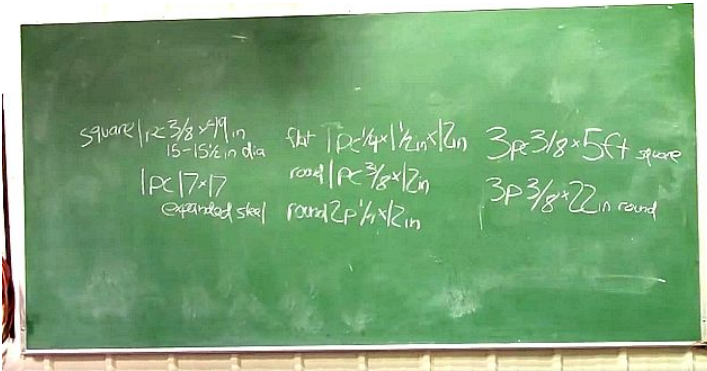 square 1 pc 3/8 x 49 in
15-15½ in dia
1 pc 17x17
expanded steel
flat 1 pc ¼ x 1 ½ in x 12 in
round 1 pc 3/8 x 12 in
round 2p ¼ x 12 in
3pc 3/8 x 5ft square
3p 3/8 x 22 in round